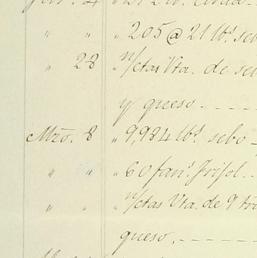 " " " 205 @ 21 lbs. seb
" 28 " n/ctas Vta. de se
y queso - - - -
Mzo. 8 " 9,934 lbs. sebo -
" " " 60 fans. frijol - -
" " " n/ctas Vta. de 9
queso, - - - -